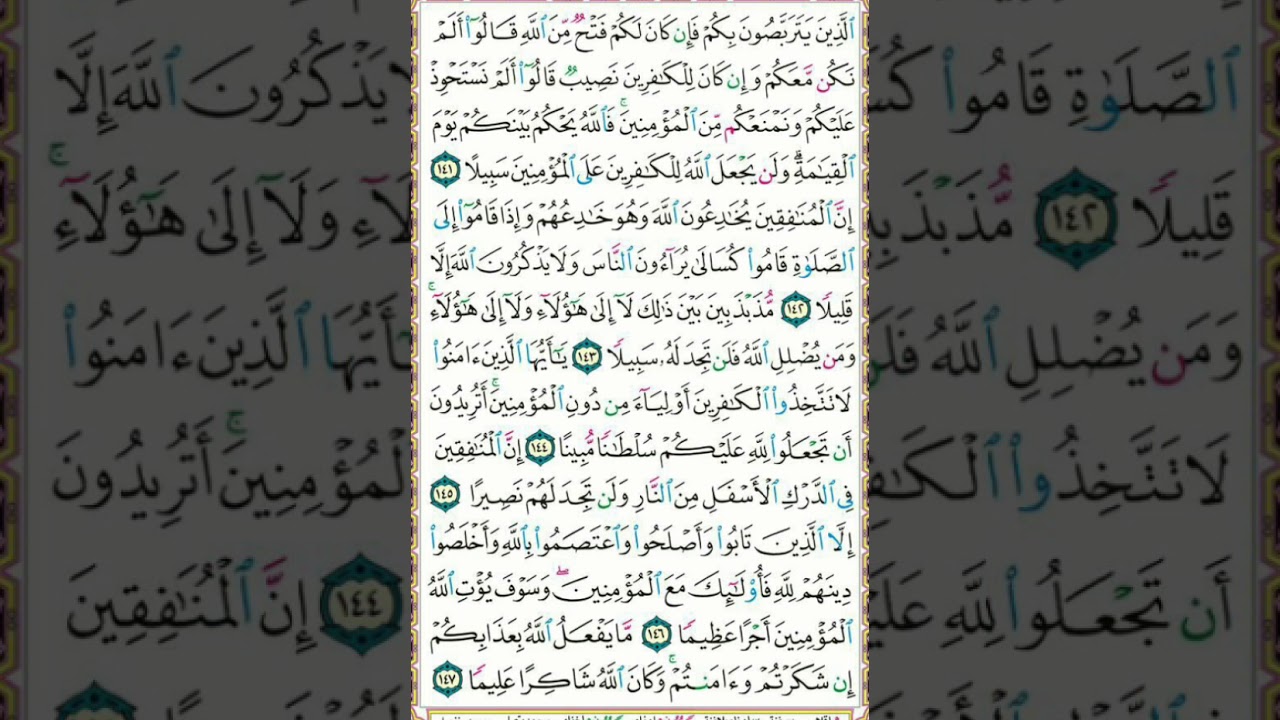 ٱلَّذِينَ يَتَرَبَّصُونَ بِكُمْ فَإِن كَانَ لَكُمْ فَتْحٌ مِّنَ ٱللَّهِ قَالُوٓا۟ أَلَمْ
نَكُن مَّعَكُمْ وَإِن كَانَ لِلْكَٰفِرِينَ نَصِيبٌ قَالُوٓا۟ أَلَمْ نَسْتَحْوِذْ
عَلَيْكُمْ وَنَمْنَعْكُم مِّنَ ٱلْمُؤْمِنِينَ ۚ فَٱللَّهُ يَحْكُمُ بَيْنَكُمْ يَوْمَ
ٱلْقِيَٰمَةِ ۗ وَلَن يَجْعَلَ ٱللَّهُ لِلْكَٰفِرِينَ عَلَى ٱلْمُؤْمِنِينَ سَبِيلًا ١٤١
إِنَّ ٱلْمُنَٰفِقِينَ يُخَٰدِعُونَ ٱللَّهَ وَهُوَ خَٰدِعُهُمْ وَإِذَا قَامُوٓا۟ إِلَى
ٱلصَّلَوٰةِ قَامُوا۟ كُسَالَىٰ يُرَآءُونَ ٱلنَّاسَ وَلَا يَذْكُرُونَ ٱللَّهَ إِلَّا
قَلِيلًا ١٤٢ مُّذَبْذَبِينَ بَيْنَ ذَٰلِكَ لَآ إِلَىٰ هَٰٓؤُلَآءِ وَلَآ إِلَىٰ هَٰٓؤُلَآءِ ۚ
وَمَن يُضْلِلِ ٱللَّهُ فَلَن تَجِدَ لَهُۥ سَبِيلًا ١٤٣ يَٰٓأَيُّهَا ٱلَّذِينَ ءَامَنُوا۟
لَا تَتَّخِذُوا۟ ٱلْكَٰفِرِينَ أَوْلِيَآءَ مِن دُونِ ٱلْمُؤْمِنِينَ ۚ أَتُرِيدُونَ
أَن تَجْعَلُوا۟ لِلَّهِ عَلَيْكُمْ سُلْطَٰنًا مُّبِينًا ١٤٤ إِنَّ ٱلْمُنَٰفِقِينَ
فِى ٱلدَّرْكِ ٱلْأَسْفَلِ مِنَ ٱلنَّارِ وَلَن تَجِدَ لَهُمْ نَصِيرًا ١٤٥
إِلَّا ٱلَّذِينَ تَابُوا۟ وَأَصْلَحُوا۟ وَٱعْتَصَمُوا۟ بِٱللَّهِ وَأَخْلَصُوا۟
دِينَهُمْ لِلَّهِ فَأُو۟لَٰٓئِكَ مَعَ ٱلْمُؤْمِنِينَ ۖ وَسَوْفَ يُؤْتِ ٱللَّهُ
ٱلْمُؤْمِنِينَ أَجْرًا عَظِيمًا ١٤٦ مَّا يَفْعَلُ ٱللَّهُ بِعَذَابِكُمْ
إِن شَكَرْتُمْ وَءَامَنتُمْ ۚ وَكَانَ ٱللَّهُ شَاكِرًا عَلِيمًا ١٤٧